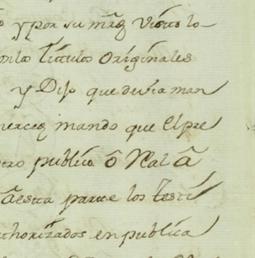 y por su mrd visto lo
los titulos originales
y Dijo que devia man
mercez mando que el pre
publico ô Real â
âesta parte los testi
authorizados en publica